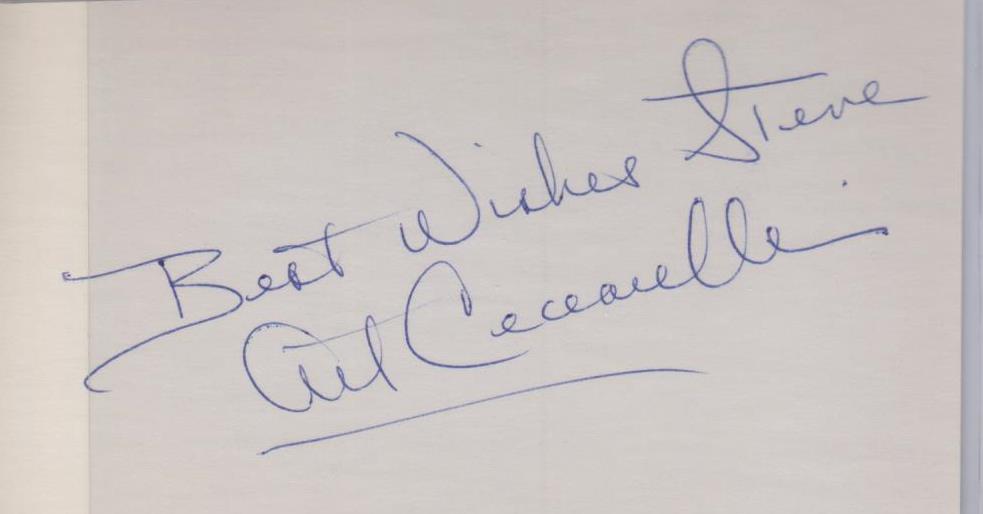 Best Wishes Steve
Art Ceccarelli